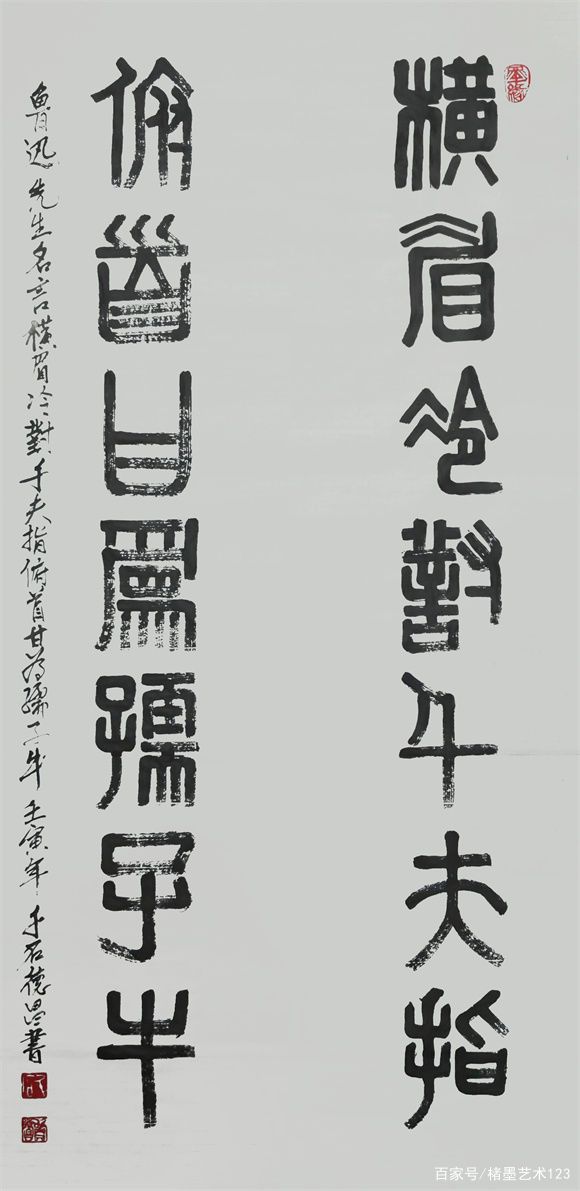 橫眉冷對千夫指
俯首甘爲孺子牛
魯迅先生名言橫眉冷對千夫指俯首甘为孺子牛 壬寅年 石德書
百家号/楮墨艺术123